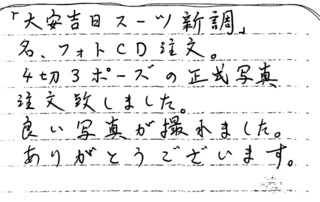 「大安吉日スーツ新調」
名、フォトCD注文。
4切3ポーズの正式写真
注文致しました。
良い写真が撮れました。
ありがとうございます。